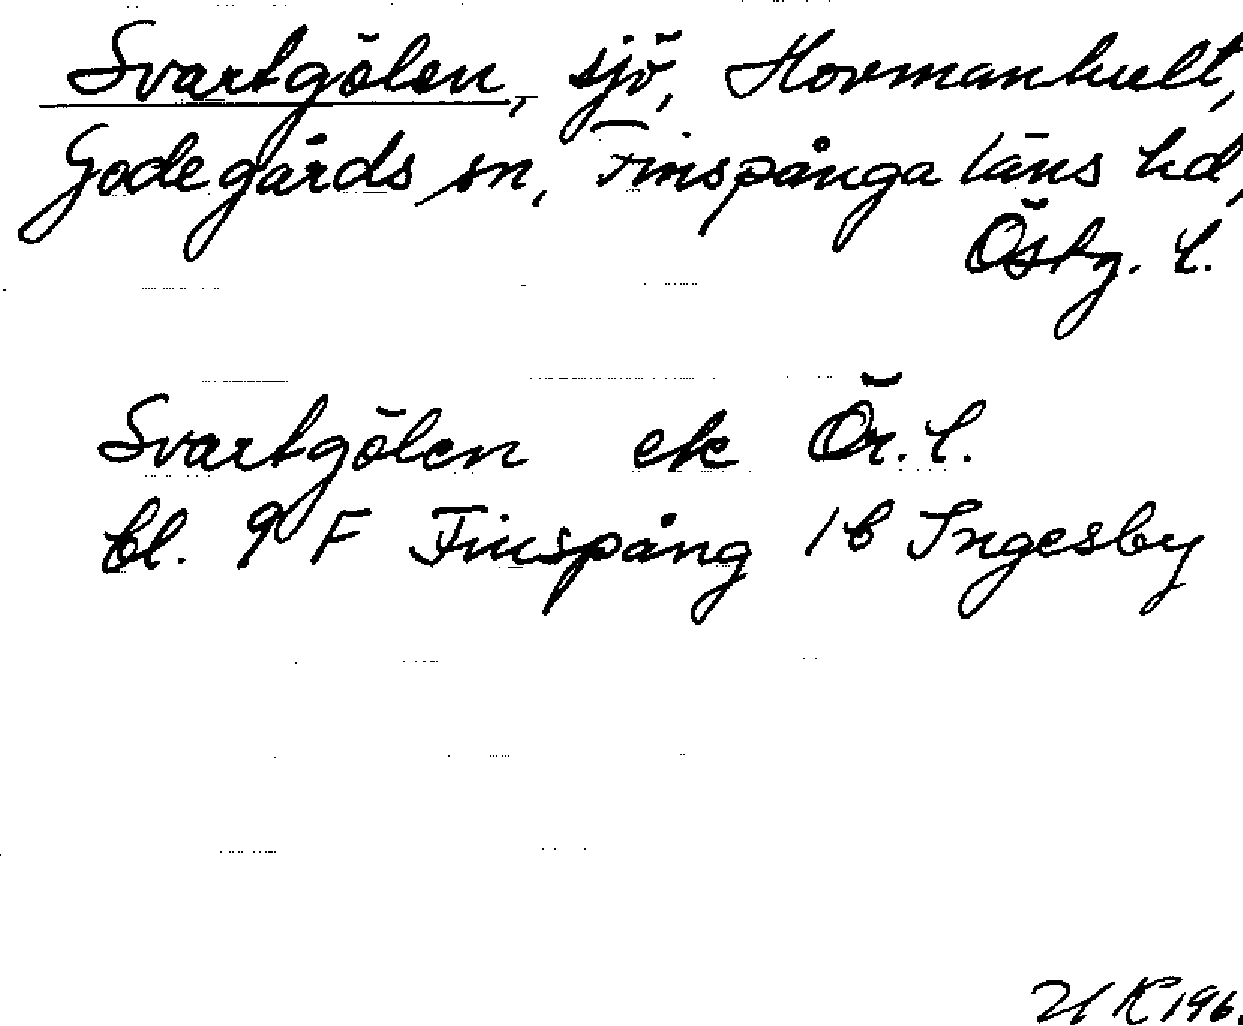 Svartgölen, sjö, Hormanhult,
Godegårds sn, Finspånga läns hd,
Östg. l.
Svartgölen ek Ör. l.
bl. 9 F Finspång 1 b Ingesby
196